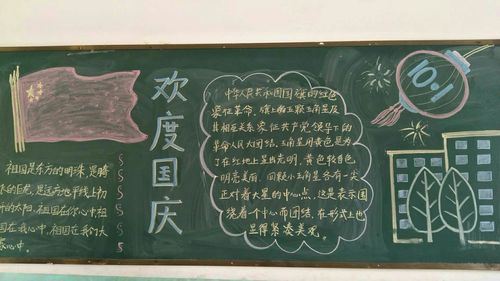 欢度国庆
10.1
中华人民共和国国旗的红色
象征革命。旗上的五颗五角星及
其相互关系象征共产党领导下的
革命人民大团结。五角星用黄色是为
了在红地上显出光明，黄色较白色
明亮美丽，四颗小五角星各有一尖
正对着大星的中心点，这是表示围
绕着一个中心而团结，在形式上也
显得紧凑美观。
祖国是东方的明珠，是腾
的巨龙，是这片地平线上初
升的太阳。祖国在你心中祖
国在我心中，祖国在我们大
家心中。